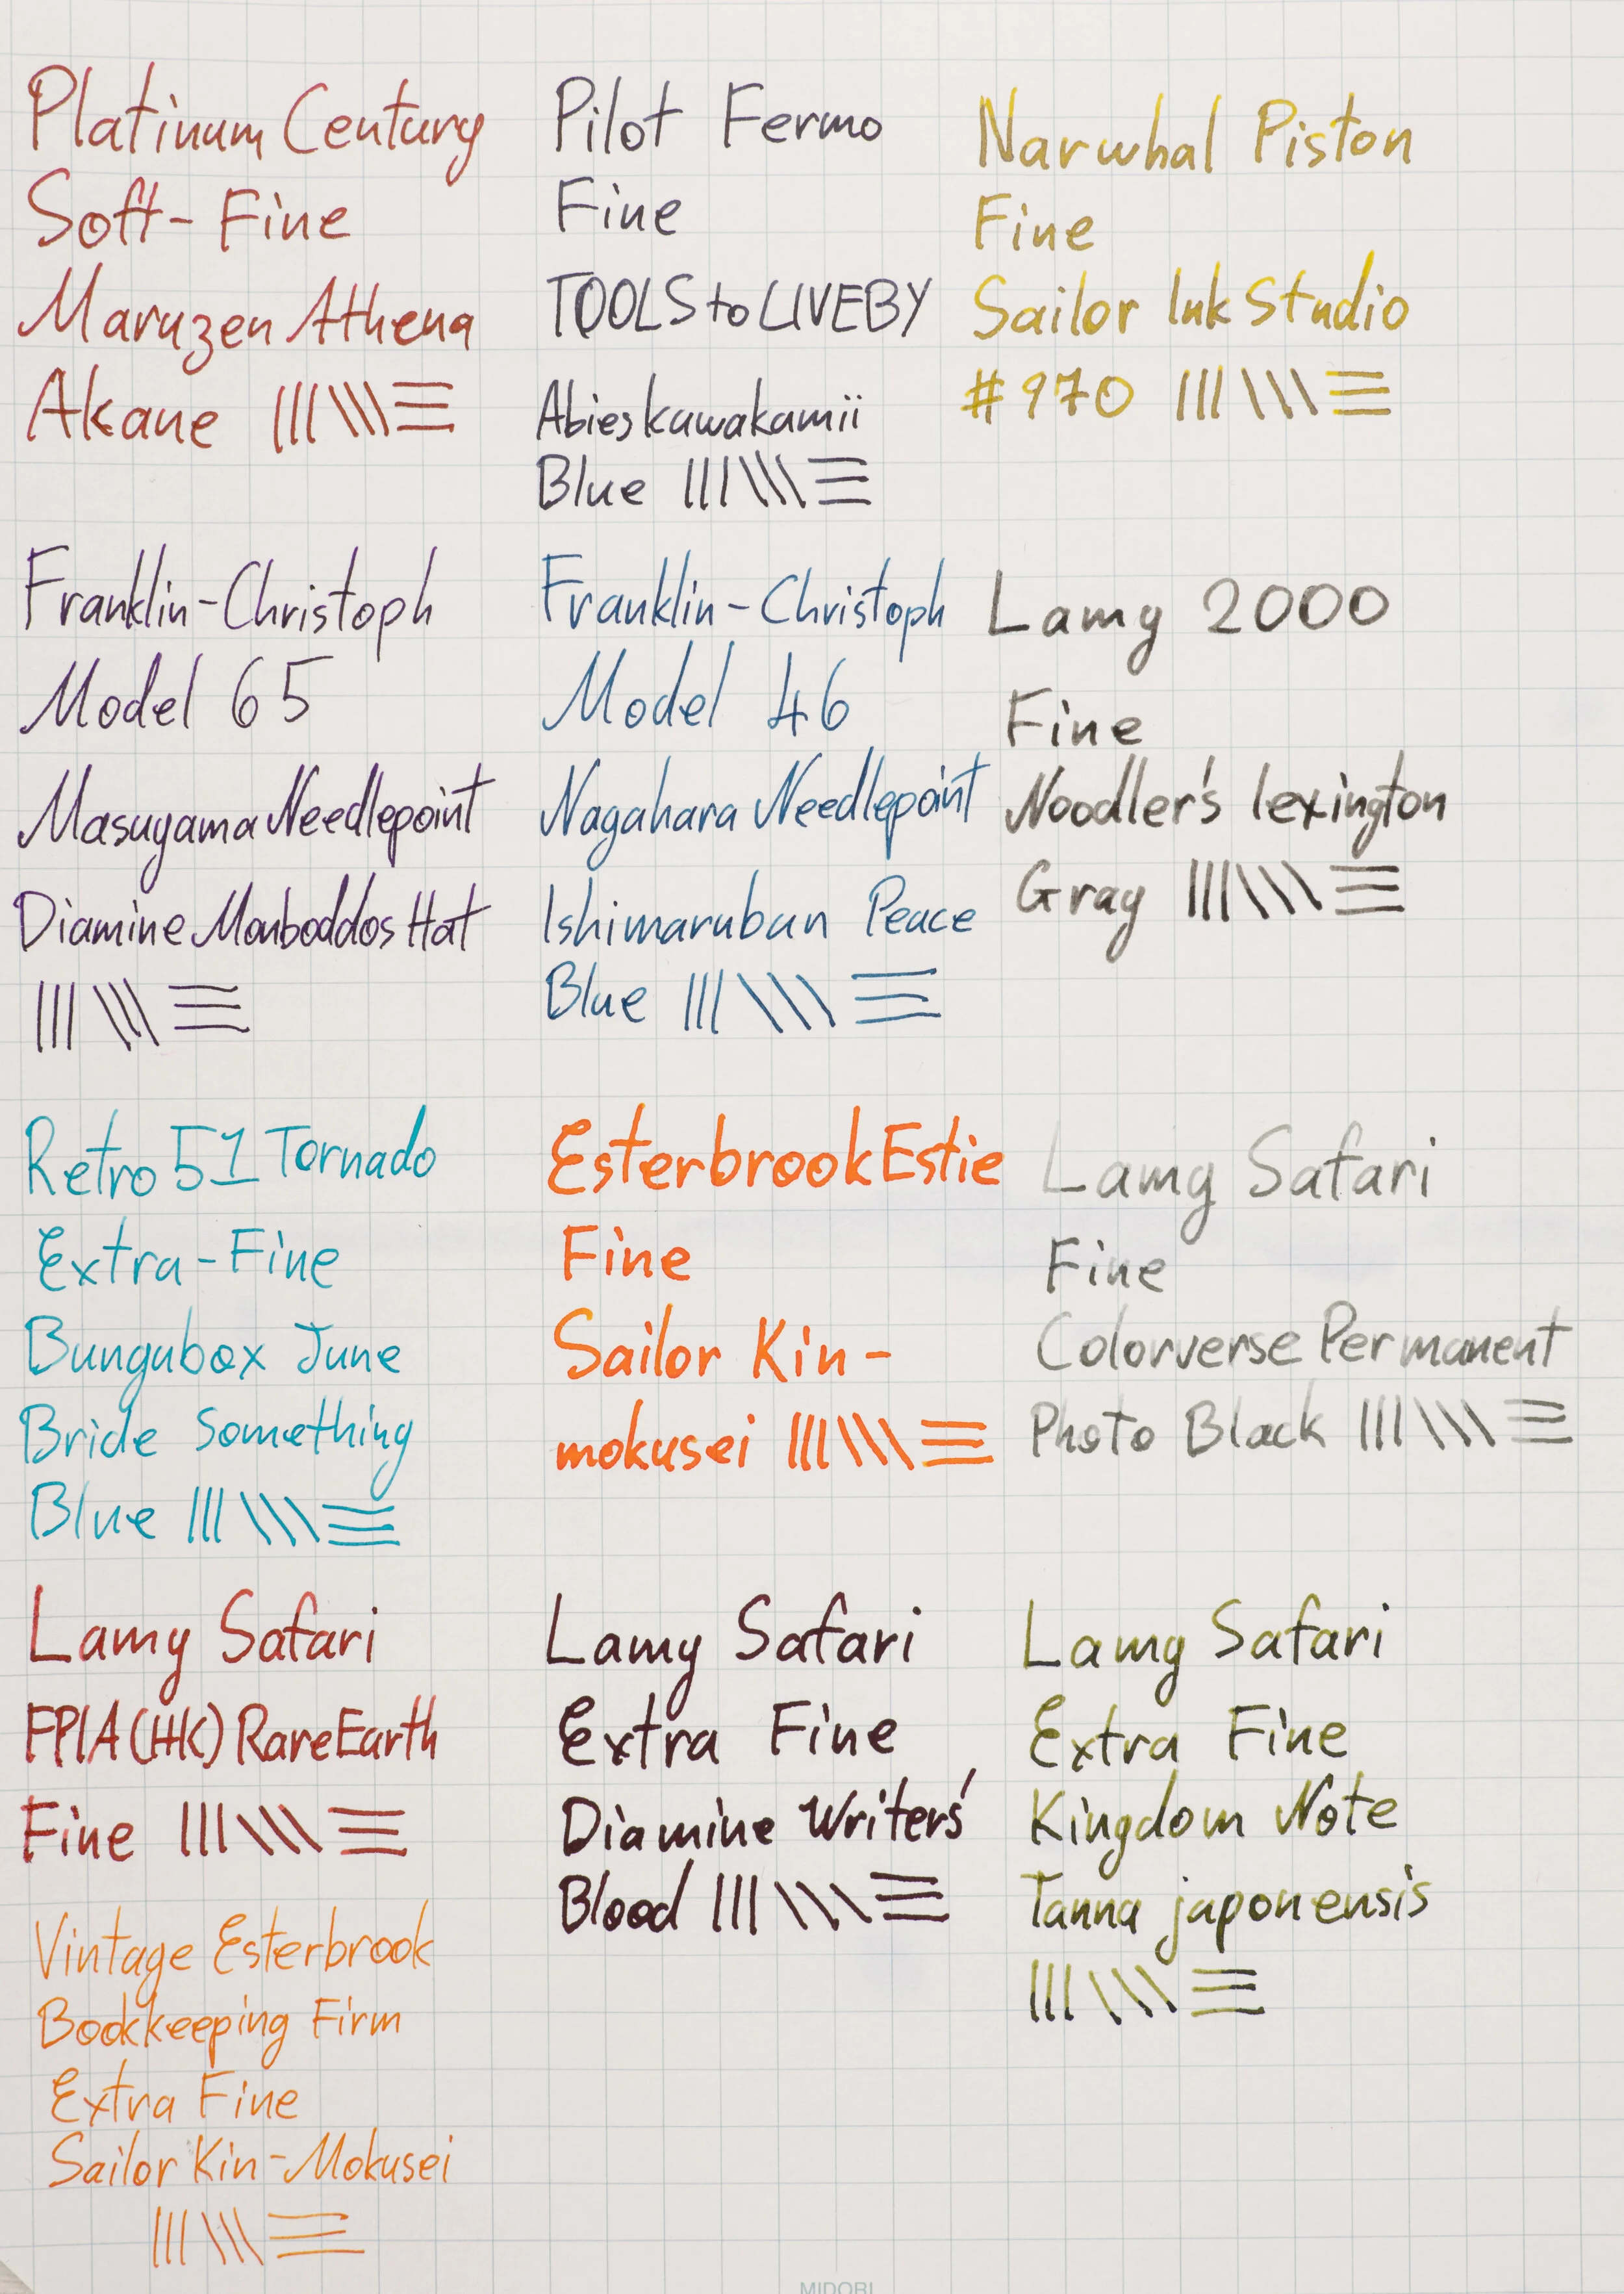 Platinum Century
Soft-Fine
Maruzen Athena
Akane
Pilot Fermo
Fine
TOOLS to LIVEBY
Abies kawakamii
Blue
Narwhal Piston
Fine
Sailor Ink Studio
#970
Franklin-Christoph
Model 65
Masuyama Needlepoint
Diamine Monboddos Hat
Franklin-Christoph
Model 46
Nagahara Needlepoint
Ishimarubun Peace
Blue
Lamy 2000
Fine
Noodler's lexington
Gray
Retro 51 Tornado
Extra-Fine
Bungubox June
Bride Something
Blue
Esterbrook Estie
Fine
Sailor Kin-
mokusei
Lamy Safari
Fine
Colorverse Permanent
Photo Black
Lamy Safari
FPIA(HK) RareEarth
Fine
Lamy Safari
Extra Fine
Diamine Writers'
Blood
Lamy Safari
Extra Fine
Kingdom Note
Tanna japonensis
Vintage Esterbrook
Bookkeeping Firm
Extra Fine
Sailor Kin-Mokusei
MIDORI